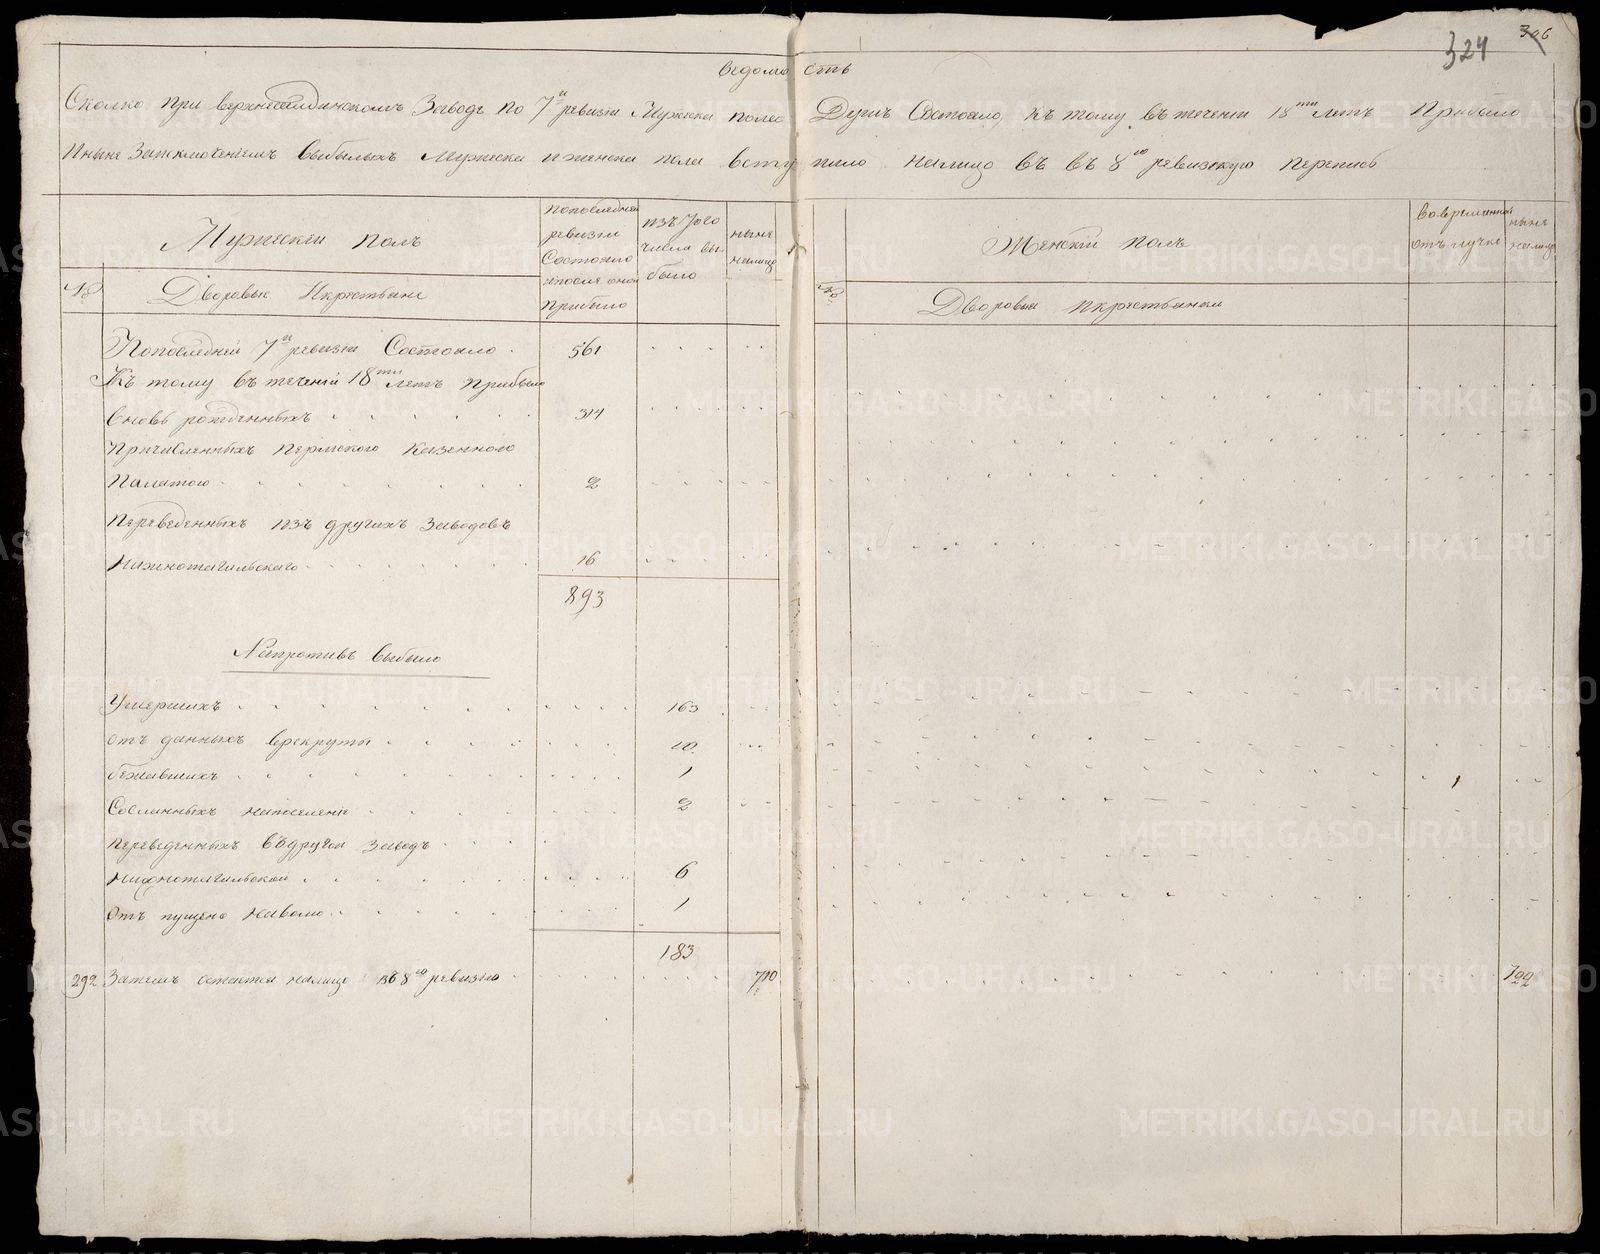 306
324
Ведомость
Сколко при верхнесалдинскомъ Заводѣ по 7й ревизіи Мужска полео Душъ Состояло, къ тому въ теченіи 18ти летъ Прибыло
Иныне Затключениемъ выбылыхъ Мужеска и женска пола всту пило налицо въ въ 8ю ревизкую перепись
Мужескій полъ
попоследней ревизіи Состояло ипосле оной прибыло
изътого числа выбыло
ныне налицо
Женскій полъ
Вовременной отълучке
ныне налицо
№
Дворовые Икрестьяне
№
Дворовыя икрестьянки
Попоследней 7й ревизіи Состояло 561
Къ тому въ теченіи 18ти летъ прибыло
Вновь рожденныхъ 314
Причисленныхъ Пермского Казенного
Палатою 2
Переведенныхъ изъ другихъ Заводовъ
Нижнотагильскаго 16
893
Напротивъ Выбыло
Умершихъ 163
Отъ данныхъ врекруты 10
бежавшихъ 1 1
Сосланныхъ напоселеніе 2
переведенныхъ въдругои Заводъ
нижнотагильской 6
Отъ пущено Наволю 1
183
292 Затемъ остается налицо въ 8ю ревизію 710 722
METRIKI.GASO-URAL.RU